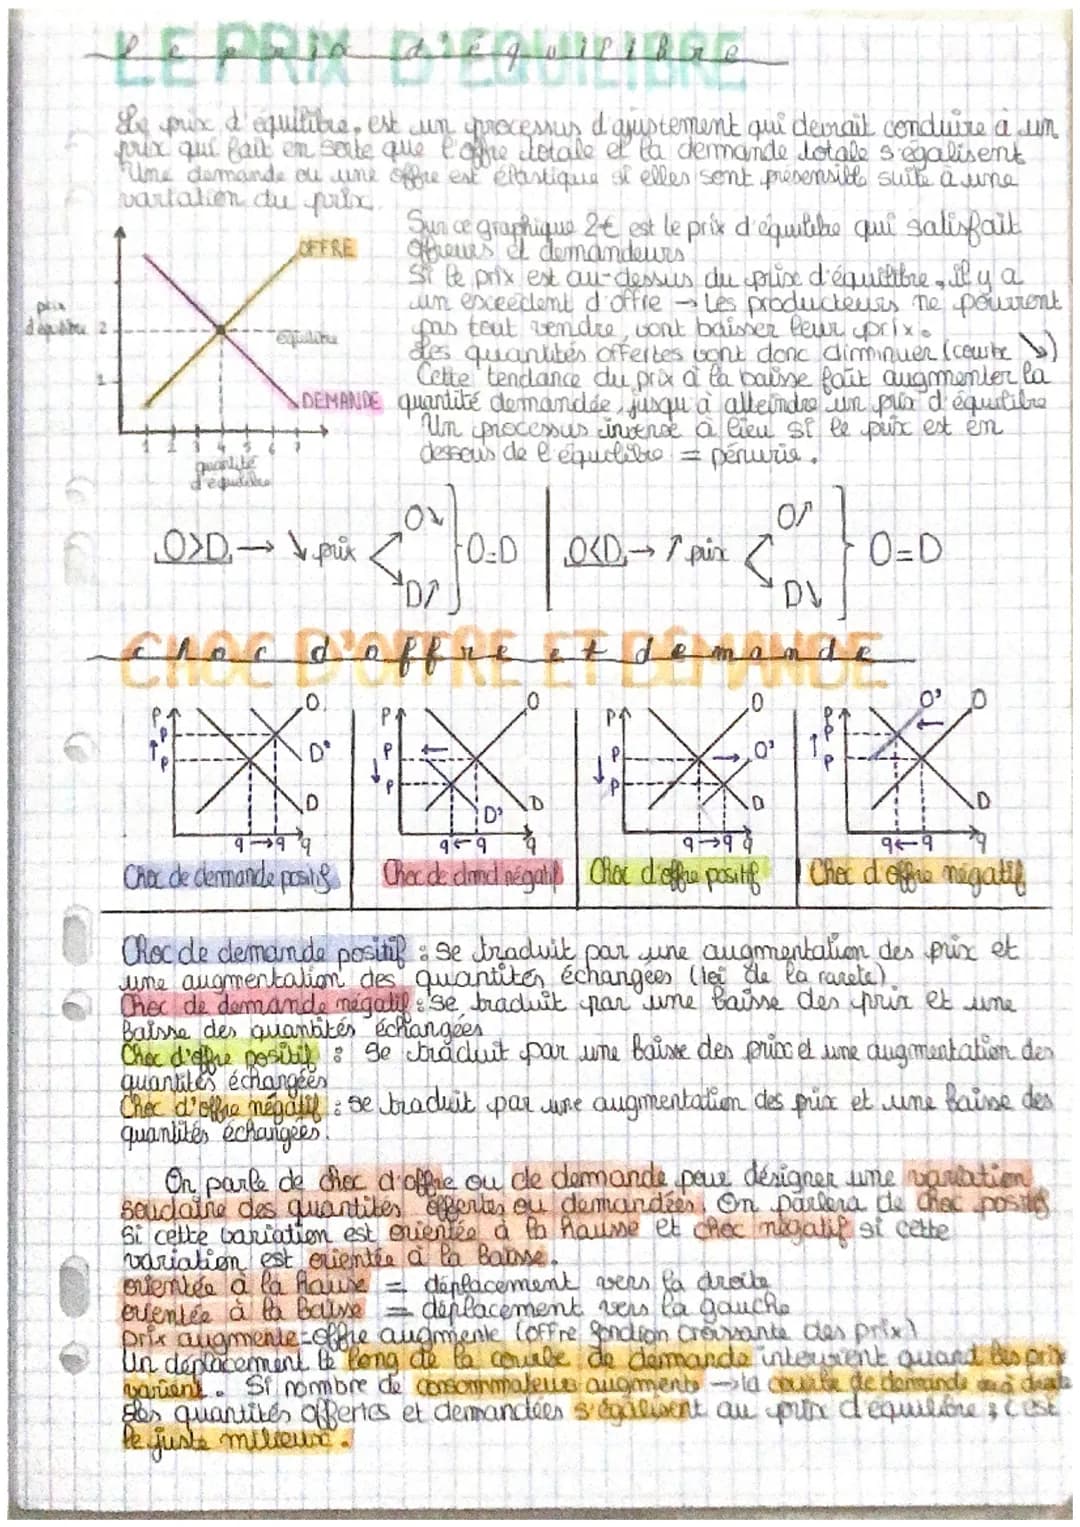 LE PRIX D'EQUILIBRE
le prix d'équilibre
Le prix d'équilibre, est un processus d'ajustement qui devrait conduire à un
prix qui fait en sorte que l'offre totale et la demande totale s'égalisent
Une demande ou une offre est élastique si elles sont présensible suite à une
variation du prix.
Sur ce graphique 2€ est le prix d'équilibre qui satisfait
offreurs et demandeurs
Si le prix est au-dessus du prix d'équilibre, il y a
un excédent d'offre → Les producteurs ne pouvant
pas tout vendre, vont baisser leur prix.
Les quantités offertes vont donc diminuer (courbe ↘)
Cette tendance du prix à la baisse fait augmenter la
quantité demandée, jusqu'à atteindre un prix d'équilibre
Un processus inverse à lieu si le prix est en
dessous de l'équilibre = pénurie.
OFFRE
prix
d'équilibre 2
équilibre
1
DEMANDE
1 2 3 4 5 6 7
quantité
d'équilibre
O>D → ↘ prix < O↘ D↗ } O=D
O<D → ↗ prix < O↗ D↘ } O=D
CHOC D'OFFRE ET DEMANDE
choc d'offre et demande
P P P O D' D q→q q
P P P O D D' q←q q
P P P O O' D q→q q
P P P O' O D q←q q
Choc de demande positif
Choc de dmnd négatif
Choc d'offre positif
Choc d'offre négatif
Choc de demande positif : se traduit par une augmentation des prix et
une augmentation des quantités échangées (loi de la rareté).
Choc de demande négatif : se traduit par une baisse des prix et une
baisse des quantités échangées
Choc d'offre positif : se traduit par une baisse des prix et une augmentation des
quantités échangées
Choc d'offre négatif : se traduit par une augmentation des prix et une baisse des
quantités échangées.
On parle de choc d'offre ou de demande pour désigner une variation
soudaine des quantités offertes ou demandées. On parlera de choc positif
si cette variation est orientée à la hausse et choc négatif si cette
variation est orientée à la baisse.
orientée à la hausse = déplacement vers la droite
orientée à la baisse = déplacement vers la gauche
prix augmente = offre augmente (offre fonction croissante des prix)
Un déplacement le long de la courbe de demande intervient quand les prix
varient. Si nombre de consommateurs augmente → la courbe de demande à droite
Les quantités offertes et demandées s'égalisent au prix d'équilibre ; c'est
le juste milieux.